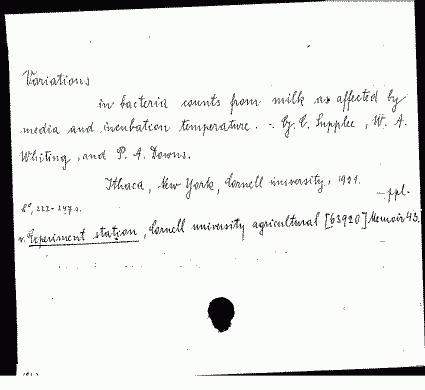 Variations
in bacteria counts from milk as affected by
media and incubation temperature. - G. C. Supplee, W. A.
Whiting, and P. A. Downs.
Ithaca, New York, Cornell university, 1921.
— ppl.
8°, 222-247 s.
v. Experiment station, Cornell university agricultural [63920] Memoir 43.